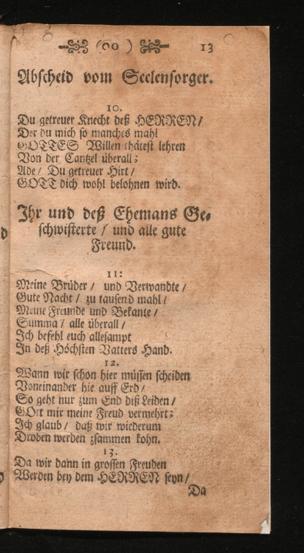 (00) 13
Abscheid vom Seelensorger.
10.
Du getreuer Knecht deß HERREN /
Der du mich so manches mahl
GOTTES Willen thätest lehren
Von der Cantzel überall;
Ade / Du getreuer Hirt /
GOTT dich wohl belohnen wird.
Ihr und deß Ehemans Ge-
schwisterte / und alle gute
Freund.
11:
Meine Brüder / und Verwandte /
Gute Nacht / zu tausend mahl /
Meine Freunde und Bekante /
Summa / alle überall /
Ich befehl euch allesampt
In deß Höchsten Vatters Hand.
12.
Wann wir schon hier müssen scheiden
Voneinander hie auff Erd /
So geht nur zum End diß Leiden /
GOtt mir meine Freud vermehrt;
Ich glaub / daß wir wiederum
Droben werden zsammen kohn.
13.
Da wir dann in grossen Freuden
Werden bey dem HERREN seyn /
Da